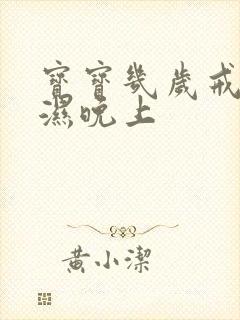 寶寶幾歲戒
濕晚上
黃小潔